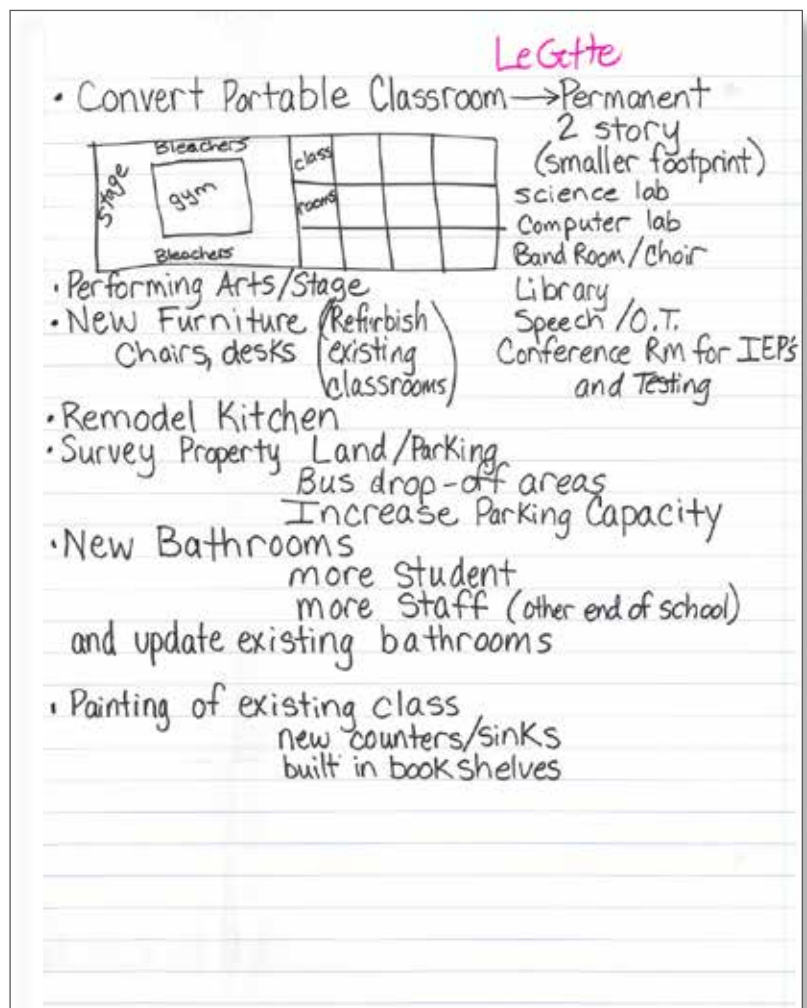 LeGette
• Convert Portable Classroom → Permanent
2 story
(smaller footprint)
science lab
Computer lab
Band Room/Choir
Library
Speech/O.T.
Conference Rm for IEP's
and Testing
Bleachers
Stage
gym
Bleachers
class
rooms
• Performing Arts/Stage
• New Furniture (Refurbish
Chairs, desks existing
classrooms)
• Remodel Kitchen
• Survey Property Land/Parking
Bus drop-off areas
Increase Parking Capacity
• New Bathrooms
more student
more Staff (other end of school)
and update existing bathrooms
• Painting of existing class
new counters/sinks
built in book shelves